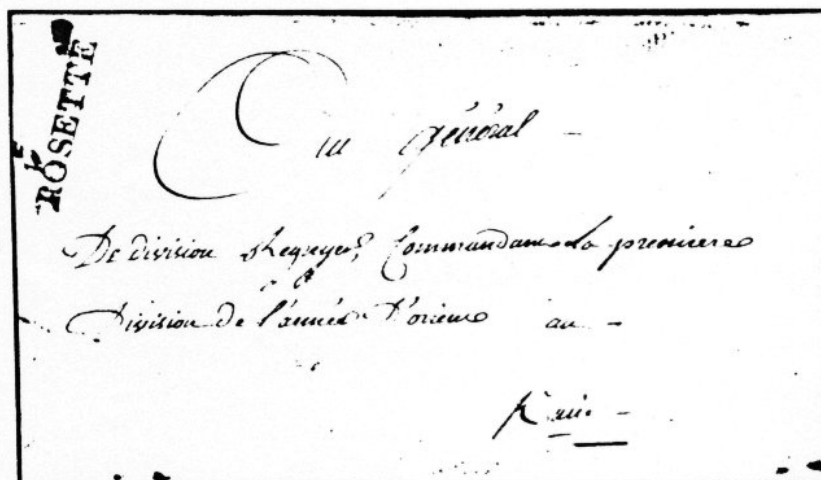 ROSETTE
Au général
De division Regnyer, Commandant la premiere
Division de l'armée D'orient au
Kaire